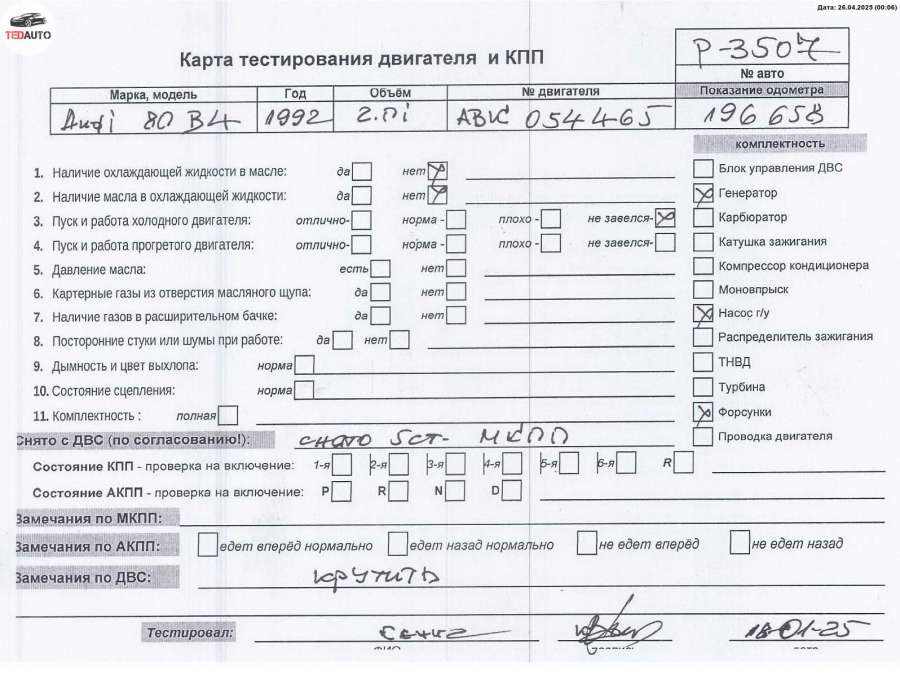 Дата: 26.04.2025 (00:06)
TEDAUTO
Карта тестирования двигателя и КПП
P-3507
№ авто
Марка, модель Год Объём № двигателя Показание одометра
Audi 80 B4 1992 2.0i ABK 054465 196 658
комплектность
1. Наличие охлаждающей жидкости в масле: да нет
Блок управления ДВС
2. Наличие масла в охлаждающей жидкости: да нет
Генератор
3. Пуск и работа холодного двигателя: отлично- норма - плохо - не завелся-
Карбюратор
4. Пуск и работа прогретого двигателя: отлично- норма - плохо - не завелся-
Катушка зажигания
5. Давление масла: есть нет
Компрессор кондиционера
6. Картерные газы из отверстия масляного щупа: да нет
Моновпрыск
7. Наличие газов в расширительном бачке: да нет
Насос г/у
8. Посторонние стуки или шумы при работе: да нет
Распределитель зажигания
9. Дымность и цвет выхлопа: норма
ТНВД
10. Состояние сцепления: норма
Турбина
11. Комплектность : полная
Форсунки
Снято с ДВС (по согласованию!): снято 5ст- МКПП
Проводка двигателя
Состояние КПП - проверка на включение: 1-я 2-я 3-я 4-я 5-я 6-я R
Состояние АКПП - проверка на включение: P R N D
Замечания по МКПП:
Замечания по АКПП: едет вперёд нормально едет назад нормально не едет вперёд не едет назад
Замечания по ДВС: крутить
Тестировал: 18-01-25